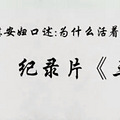 安妇口述:为什么活着
纪录片《